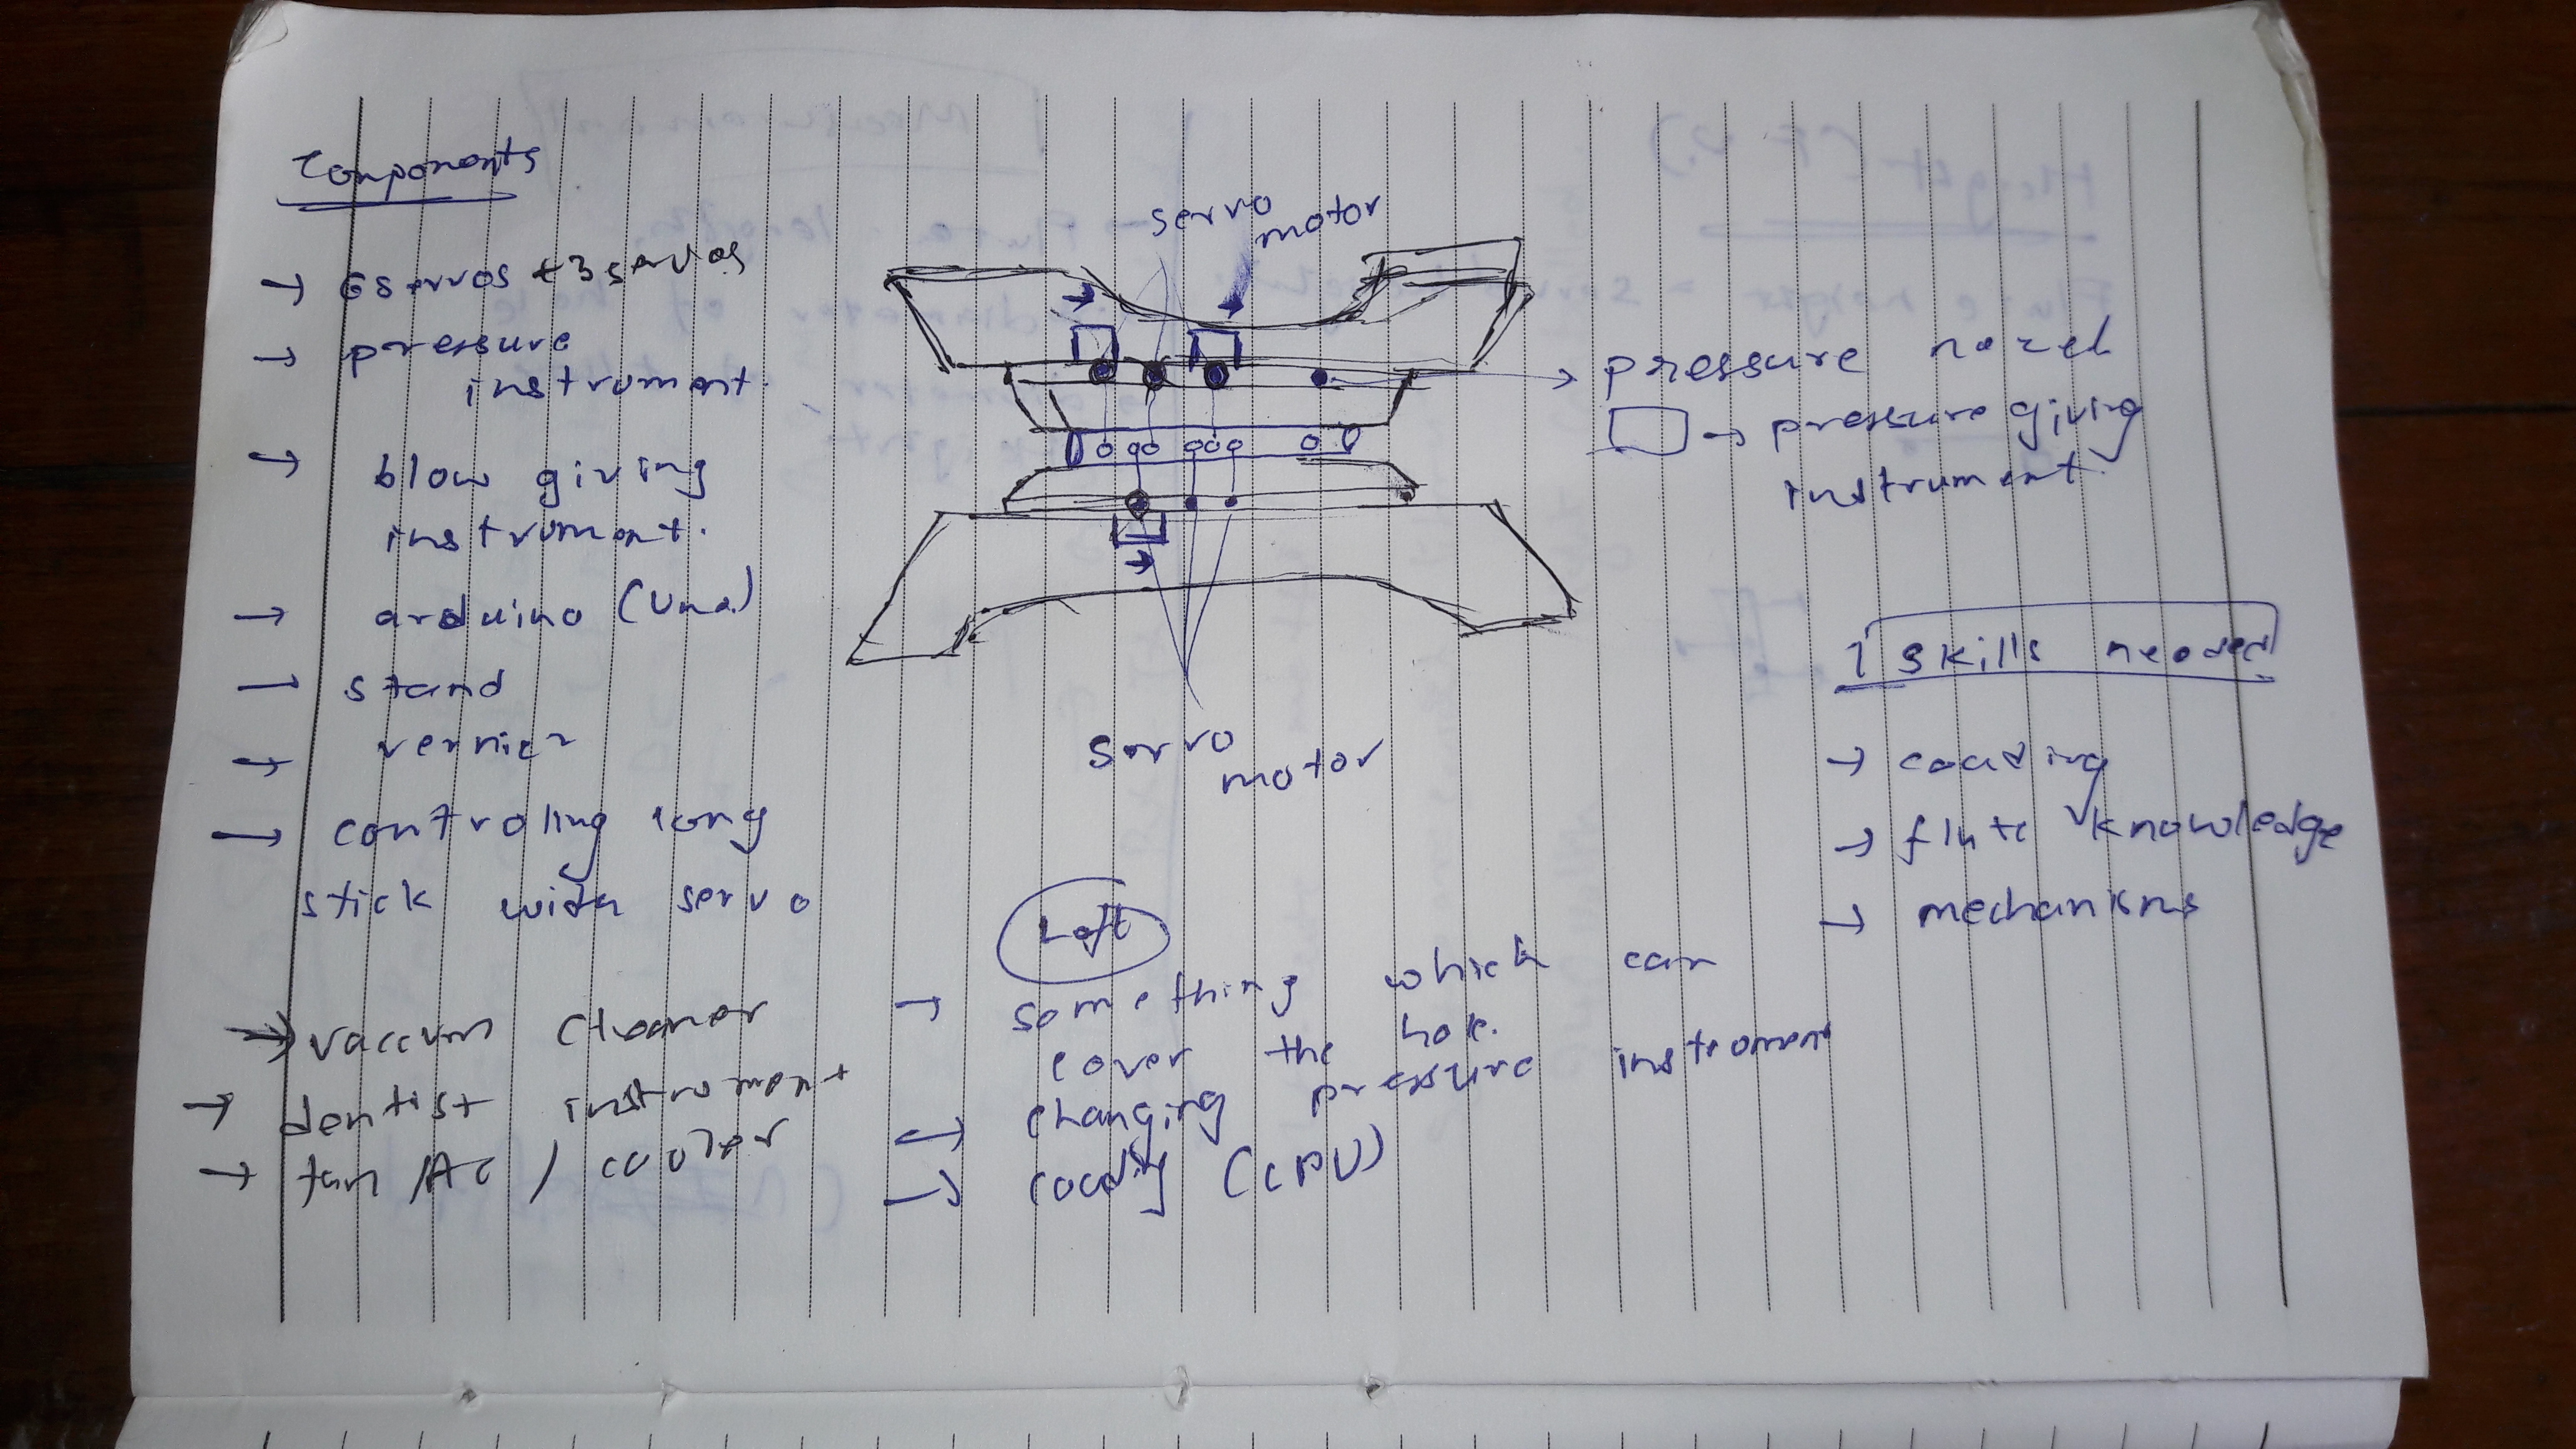 Components
→ 6 servos + 3 servos
→ pressure
instrument
→ blow giving
instrument
→ arduino (uno)
→ stand
→ verrier
→ controling tony
stick with servo
→ vaccum cleaner
→ dentist instrument
→ fan / AC / cooler
servo motor
servo motor
→ pressure nozel
→ pressure giving
instrument
Left
→ something which can
cover the hole
→ changing pressure instrument
→ coding (CPU)
Skills needed
→ coding
→ flute knowledge
→ mechanikns